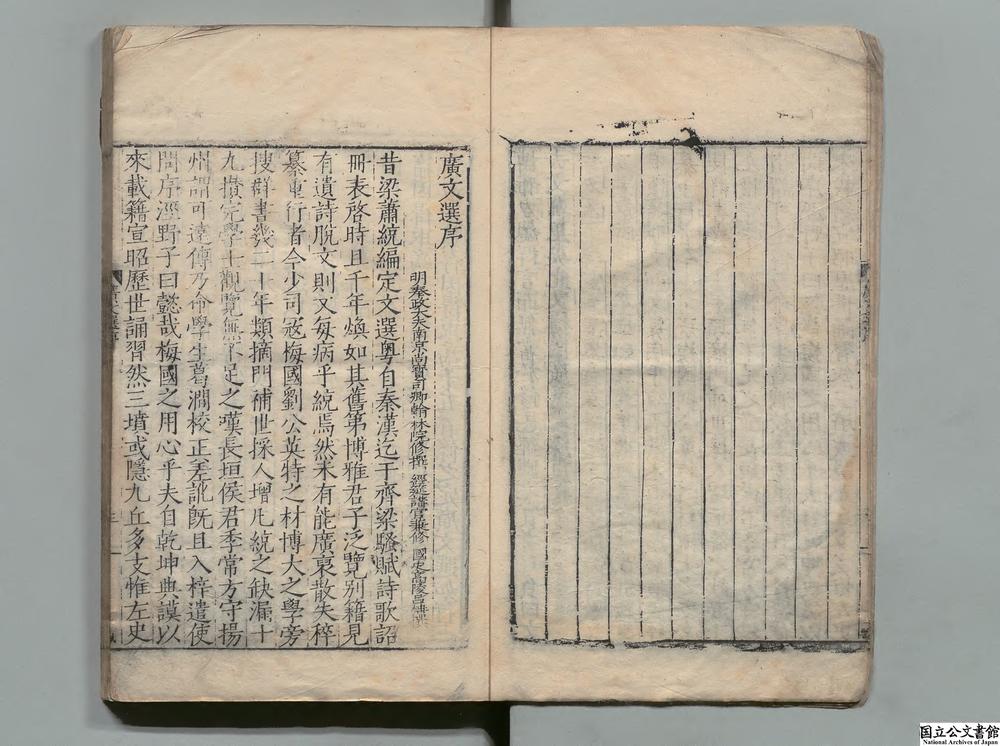 廣文選序
明奉政大夫南京尚寶司卿翰林院修撰 經筵講官兼修 國史高陵呂柟撰
昔梁蕭統編定文選粵自秦漢迄于齊梁騷賦詩歌詔
冊表啓時且千年煥如其舊第博雅君子泛覽別籍見
有遺詩脫文則又每病乎統焉然未有能廣裒散失稡
纂重行者今少司寇梅國劉公英特之材博大之學旁
搜群書幾二十年類摘門補世採人增凡統之缺漏十
九攢完學士觀覽無不足之嘆長垣侯君季常方守揚
州謂可遠傳乃命學生葛澗校正差訛旣且入梓遣使
問序涇野子曰懿哉梅國之用心乎夫自乾坤典謨以
來載籍宣昭歷世誦習然三墳或隱九丘多支惟左史
廣文選序
国立公文書館
National Archives of Japan